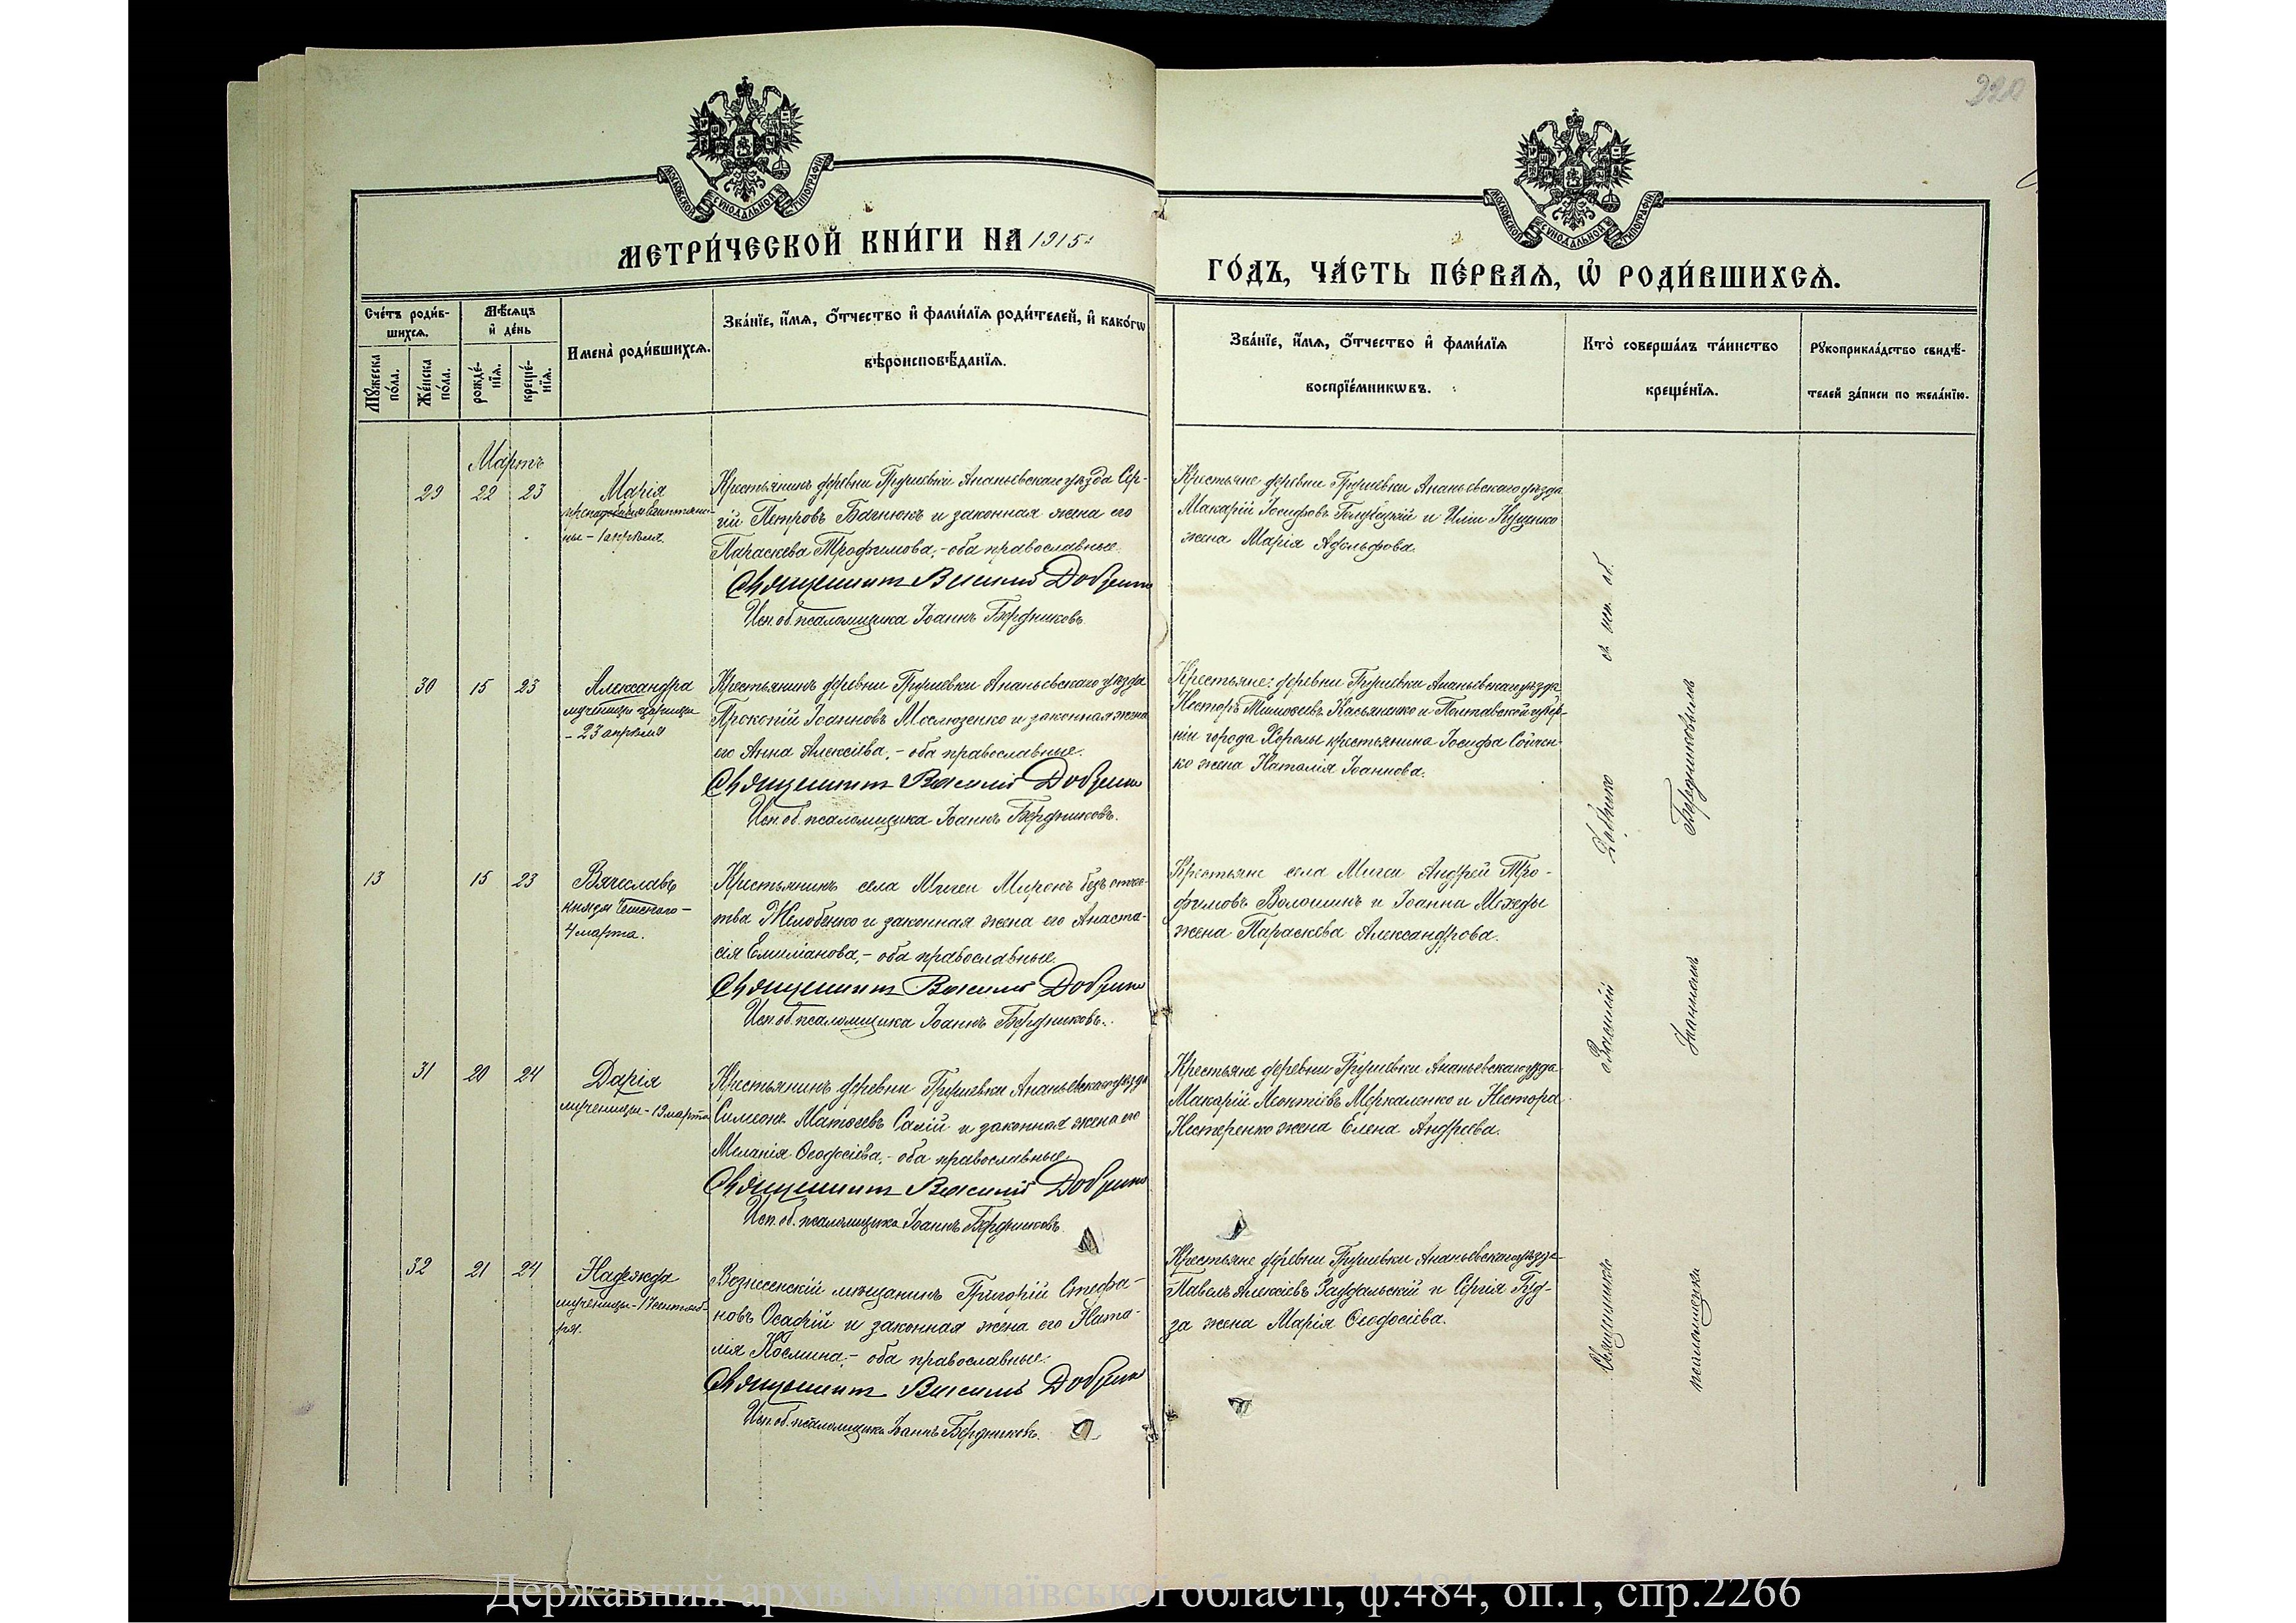 220
МОСКОВСКОЙ СУНОДАЛЬНОЙ ТИПОГРАФІИ
МОСКОВСКОЙ СУНОДАЛЬНОЙ ТИПОГРАФІИ
МЕТРИ́ЧЕСКОЙ КНИ́ГИ НА 1915
ГО́ДЪ, ЧА́СТЬ ПЕ́РВАѦ, Ѡ҆ РОДИ́ВШИХСѦ.
Сче́тъ роди́в-
шихсѧ.
Мꙋжеска по́ла.
Же́нска по́ла.
Мѣ́сѧцъ
и҆ де́нь
рожде́-
нїѧ.
креще́-
нїѧ.
И҆мена̀ роди́вшихсѧ.
Зва́нїе, и҆́мѧ, ѻ҆́тчество и҆ фами́лїѧ роди́телей, и҆ како́гѡ
вѣроисповѣ́данїѧ.
Зва́нїе, и҆́мѧ, ѻ҆́тчество и҆ фами́лїѧ
воспрїе́мникѡвъ.
Кто̀ соверша́лъ та́инство
креще́нїѧ.
Рꙋкоприкла́дство свидѣ́-
телей за́писи по жела́нїю.
Мартъ
29 22 23 Марія
ны – 1 апрѣля.
Крестьянинъ деревни Грушевки Ананьевскаго уѣзда Сер-
гій Петровъ Багнюкъ и законная жена его
Параскева Трофимова, – оба православные.
Священникъ Василій Добренко
Исп. об. псаломщика Іоаннъ Бередниковъ
Крестьяне деревни Грушевки Ананьевскаго уѣзда
Макарій Іосифовъ Голубицкій и Иліи Куценко
жена Марія Адольфова.
30 15 23 Александра
мученицы царицы
– 23 апрѣля
Крестьянинъ деревни Грушевки Ананьевскаго уѣзда
Прокопій Іоанновъ и законная жена
его Анна Алексіева, – оба православные.
Священникъ Василій Добренко
Исп. об. псаломщика Іоаннъ Бередниковъ.
Крестьяне: деревни Грушевки Ананьевскаго уѣзда
Несторъ Тимофеевъ Касьяненко и Полтавской губер-
ніи города Хоролы крестьянина Іосифа Сойчен-
ко жена Наталія Іоаннова.
13 15 23 Вячеславъ
князя Чешскаго –
4 марта.
Крестьянинъ села Мигеи Миронъ безъ отчес-
тва Желобенко и законная жена его Анаста-
сія Емиліанова, – оба православные.
Священникъ Василій Добренко
Исп. об. псаломщика Іоаннъ Бередниковъ.
Крестьяне села Мигеи Андрей Тро-
фимовъ Волошинъ и Іоанна Мехеды
жена Параскева Александрова.
31 20 24 Дарія
мученицы – 19 марта
Крестьянинъ деревни Грушевки Ананьевскаго уѣзда
Симеонъ Матѳеевъ Салій и законная жена его
Меланія Ѳеодосіева, – оба православные.
Священникъ Василій Добренко
Исп. об. псаломщика Іоаннъ Бередниковъ
Крестьяне деревни Грушевки Ананьевскаго уѣзда
Макарій Леонтіевъ Меркаленко и Нестора
Нестеренко жена Елена Андреева.
32 21 24 Надежда
мученицы – 17 сентяб-
ря.
Вознесенскій мѣщанинъ Григорій Стефа-
новъ Осадчій и законная жена его Ната-
лія Космина, – оба православные.
Священникъ Василій Добренко
Исп. об. псаломщика Іоаннъ Бередниковъ.
Крестьяне деревни Грушевки Ананьевскаго уѣзда
Павелъ Алексіевъ Заддальскій и Сергія Гуд-
за жена Марія Ѳеодосіева.
Священникъ Василій Добренко съ исп. об.
псаломщика Іоанномъ Бередниковымъ
Державний архів Миколаївської області, ф.484, оп.1, спр.2266